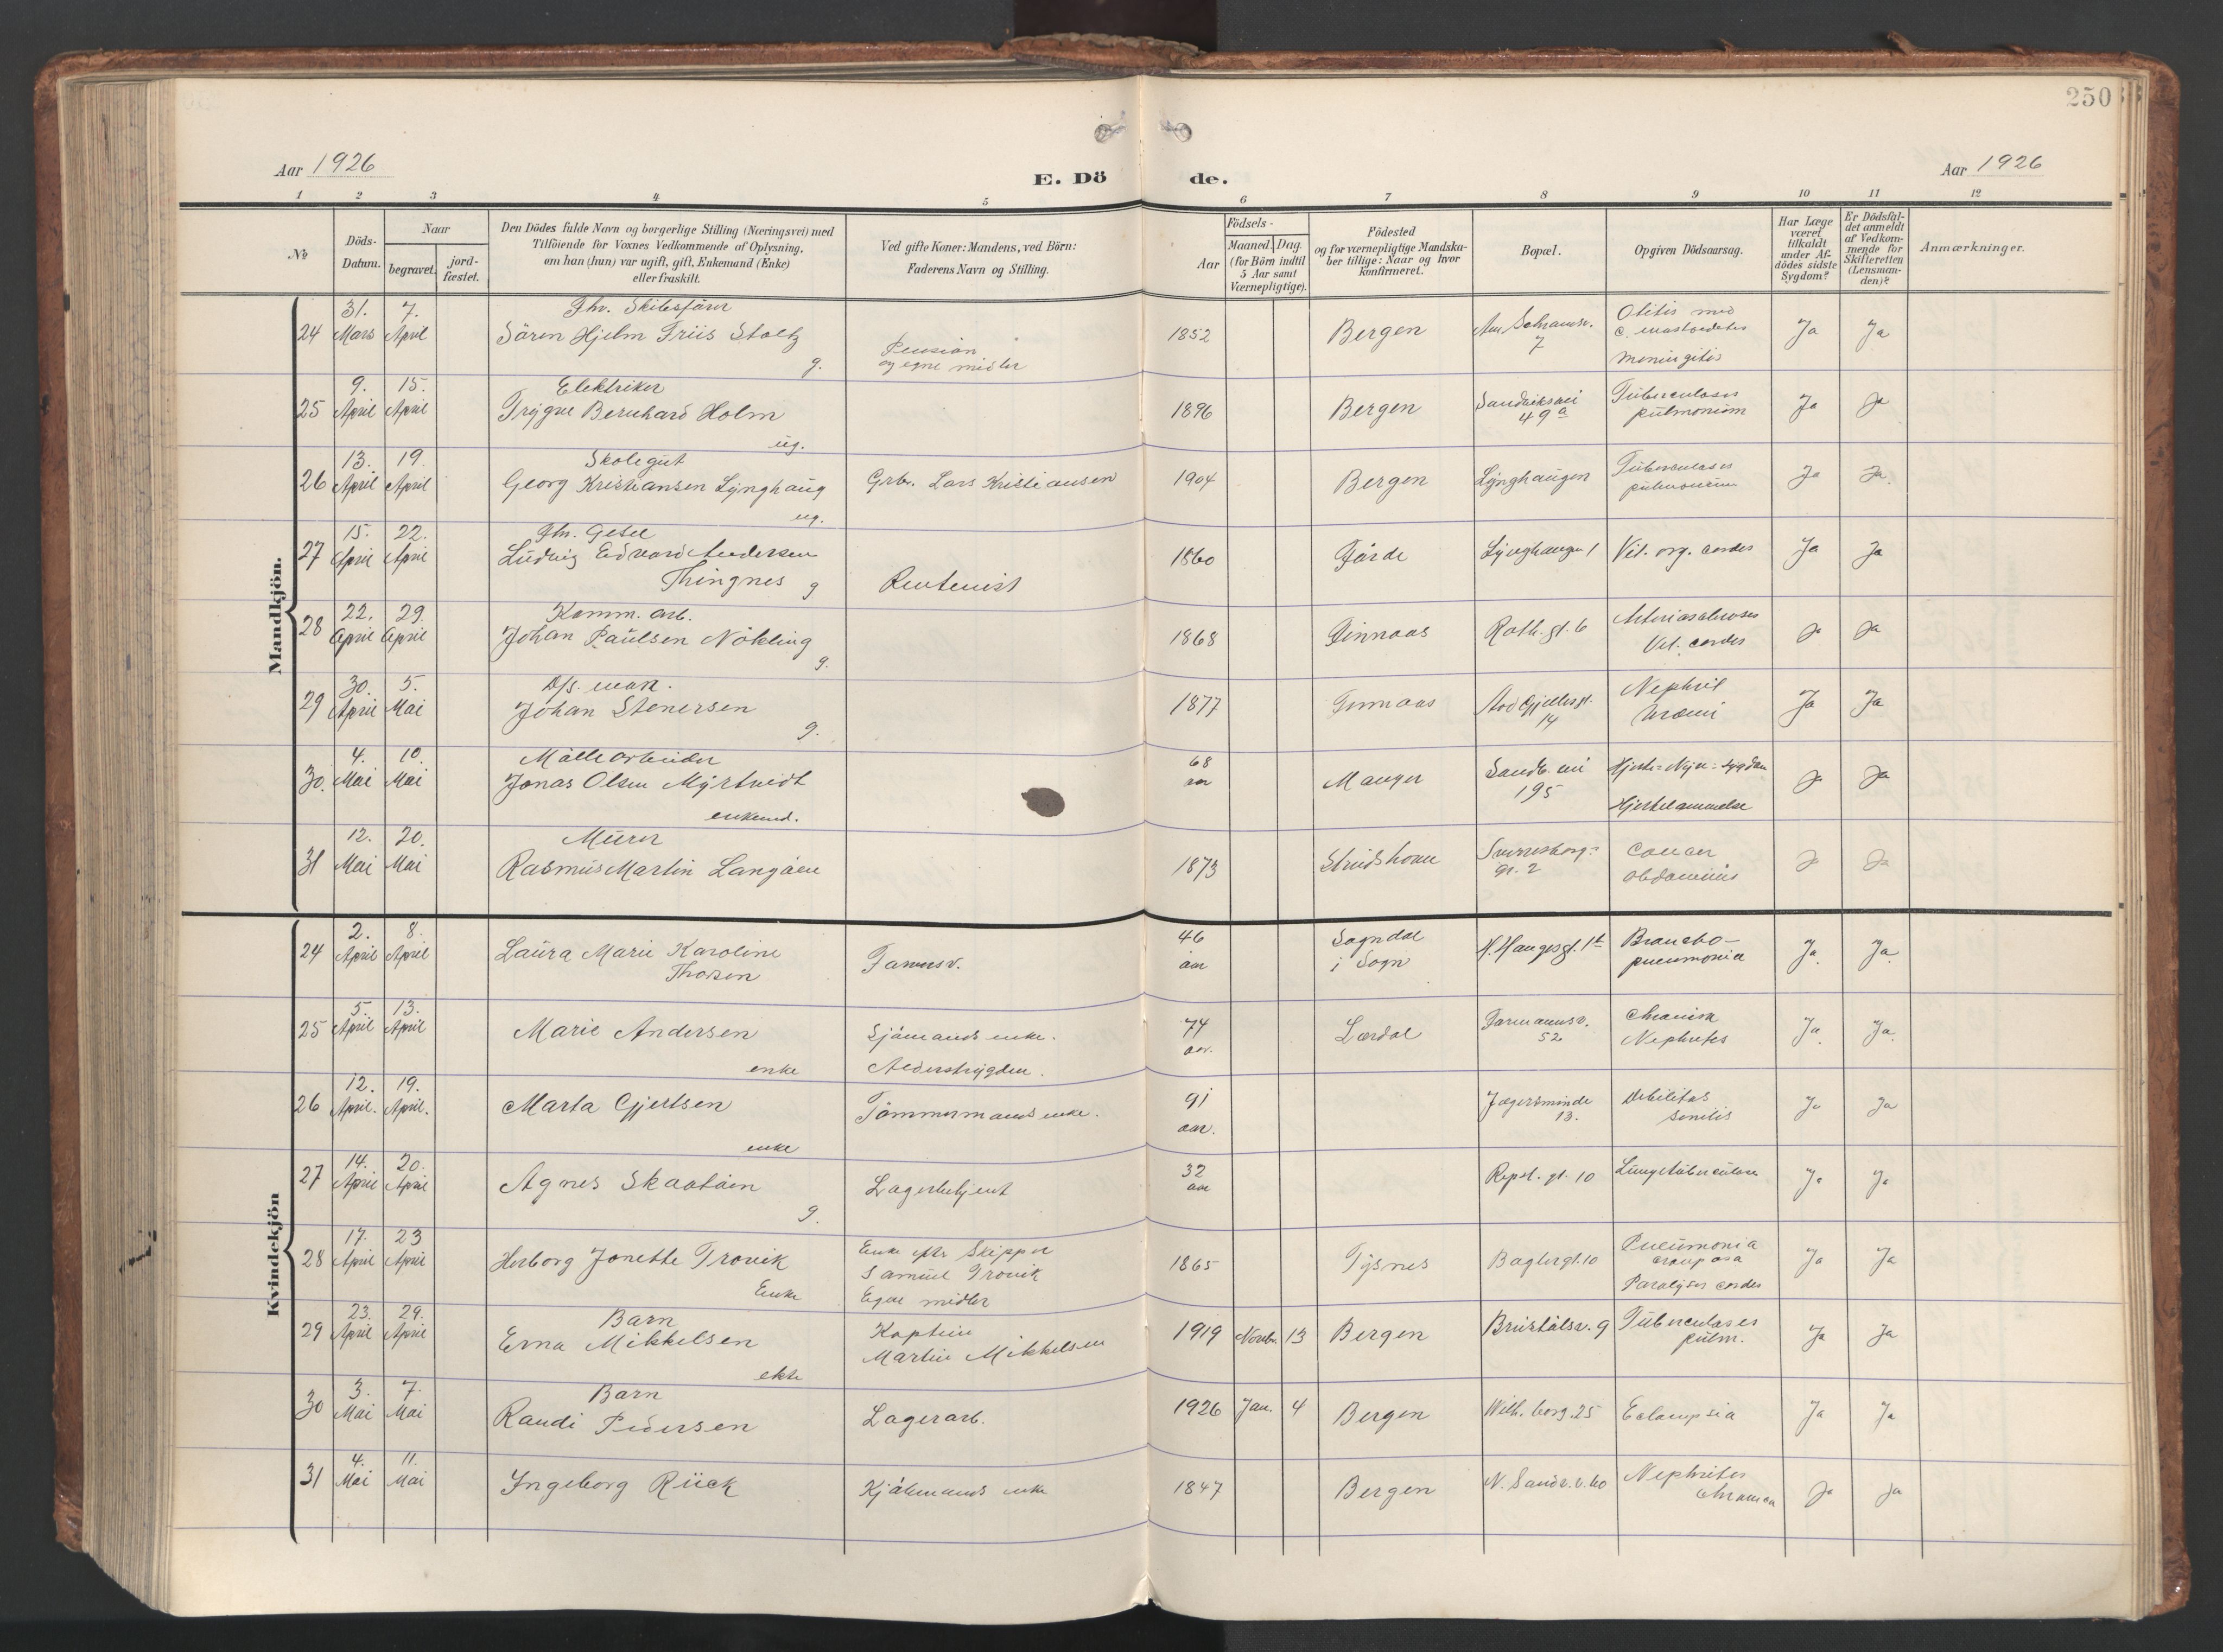 250
Aar 1926
E. Dö de.
Aar 1926
1 2 3 4 5 6 7 8 9 10 11 12
№
Döds-
Datum.
Naar
begravet.
jord-
fæstet.
Den Dödes fulde Navn og borgerlige Stilling (Næringsvei) med
Tilföiende for Voxnes Vedkommende af Oplysning,
om han (hun) var ugift, gift, Enkemand (Enke)
eller fraskilt.
Ved gifte Koner: Mandens, ved Börn:
Faderens Navn og Stilling.
Födsels-
Aar
Maaned. Dag.
(for Börn indtil
5 Aar samt
Værnepligtige).
Födested
og for værnepligtige Mandska-
ber tillige: Naar og hvor
konfirmeret.
Bopæl.
Opgiven Dödsaarsag.
Har Læge
været
tilkaldt
under Af-
dödes sidste
Sygdom?
Er Dödsfal-
det anmeldt
af Vedkom-
mende for
Skifteretten
(Lensman-
den)?
Anmærkninger.
Mandkjön.
24 31. Mars 7. April
Fhv. Skibsförer
Sören Hjelm Friis Stoltz
g.
Pension
og egne midler
1852 Bergen
7
Otitis med
c. mastoiditis
Meningitis
Ja Ja
25 9. April 15. April
Elektriker
Trygve Bernhard Holm
ug.
1896 Bergen
Sandviksvei
49a
Tuberculosis
pulmonum
Ja Ja
26 13. April 19. April
Skolegut
Georg Kristiansen Lynghaug
ug.
Grb. Lars Kristiansen
1904 Bergen Lynghaugen
Tuberculosis
pulmonum
Ja Ja.
27 15. April 22. April
Fhv. Gesel
Ludvig Edvard Andersen
Thingnes g
Rentenist
1860 Förde Lynghaugen 1 Vit. org. cordis Ja Ja
28 22. April 29. April
Komm. arb.
Johan Paulsen Nökling
g.
1868 Finnaas Roth. gt. 6
Arteriosclerosis
Vit. cordis
Ja Ja
29 30. April 5. Mai
D/s. mask.
Johan Stenersen
g.
1877 Finnaas
14
Nephrit
Uræmi
Ja Ja
30. 4. Mai 10. Mai
Möllearbeider
Jonas Olsen Myrtvedt
enkemd.
68
aar
Manger
Sandv. vei
195
Hjerte= Nyre= sygdom
Hjertelammelse
Ja Ja
31 12. Mai 20. Mai
Murer
Rasmus Martin Langåen
1873 Strudshavn
Sverresborg=
gt. 2
Cancer
abdominis
Ja Ja
Kvindekjön
24 2. April 8. April
Laura Marie Karoline
Thorsen
46
aar
Sogndal
i Sogn
H. Haugesgt. 1b
Broncho-
pneumonia
Ja. Ja.
25 5. April 13. April
Marie Andersen
enke
Sjömands enke.
Alderstrygden.
74
aar.
Lærdal
Formannsv.
52
Chronisk
Nephritis
Ja. Ja.
26 12. April. 19. April.
Marta Gjertsen
enke
Tömmermands enke.
91
aar.
Jægersminde
13.
Debilitas
senilis
Ja Ja
27 14. April 20. April
Agnes Skaatöien
g.
Lagerbetjent
32
aar
Repsl. gt. 10 Lungetuberculose Ja Ja
28 17. April 23 April
Herborg Jonette Trovik
Enke
Enke efter Skipper
Samuel Trovik
Egne midler
1865 Tysnes Baglergt. 10
Pneumonia
crouposa
Paralysis cordis
Ja Ja
29 23. April 29. April
Barn
Erna Mikkelsen
ekte
Kaptein
Martin Mikkelsen
1919 Novbr. 13 Bergen
Tuberculosis
pulm.
Ja Ja
30 3. Mai 7. Mai
Barn
Randi Pedersen
Lagerarb.
1926 Jan. 4 Bergen Wilh. borg. 25 Eclampsia Ja Ja
31 4. Mai 11. Mai
Ingeborg Rück
Kjöbmands enke
1847 Bergen N. Sandv. v. 60
Nephritis
chronica
Ja Ja